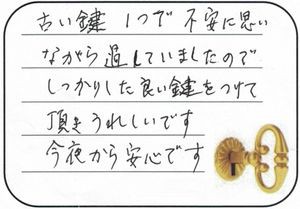 古い鍵 1つで 不安に思い
ながら過していましたので
しっかりした良い鍵をつけて
頂きうれしいです
今夜から安心です